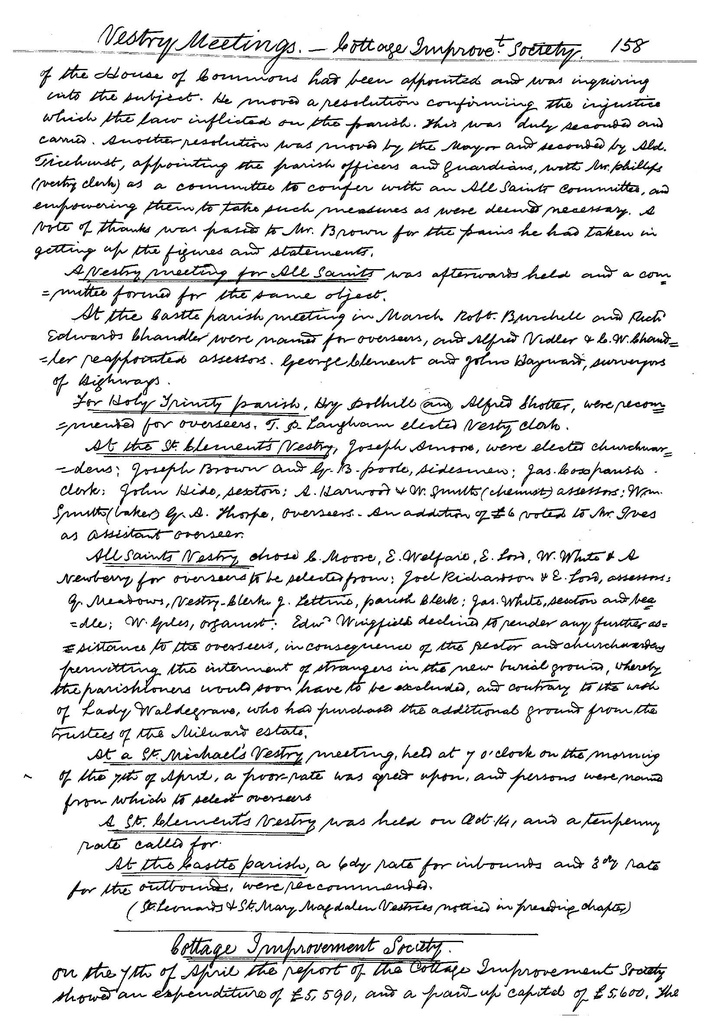 Vestry Meetings. — Cottage Improvet. Society. 158
of the House of Commons had been appointed and was inquiring
into the subject. He moved a resolution confirming the injustice
which the law inflicted on the parish. This was duly seconded and
carried. Another resolution was moved by the Mayor and seconded by Ald.
Ticehurst, appointing the parish officers and guardians, with Mr. Phillips
(vestry clerk) as a committee to confer with an All Saints Committee, and
empowering them to take such measures as were deemed necessary. A
vote of thanks was passed to Mr. Brown for the pains he had taken in
getting up the figures and statements.
A Vestry meeting for All Saints was afterwards held and a com=
=mittee formed for the same object.
At the Castle parish meeting in March Robt. Burchell and Richd
Edwards Chandler were named for overseers, and Alfred Vidler & C. W. Chand=
=ler reappointed assessors. George Clement and John Hayward, surveyors
of Highways.
For Holy Trinity parish, Hy Polhill and Alfred Shotter, were recom=
=mended for overseers. T. P. Langham elected Vestry clerk.
At the St. Clements Vestry, Joseph Amoore, were elected churchwar=
=dens; Joseph Brown and G. B. Poole, sidesmen; Jas. Cox parish
clerk; John Hide, sexton; A. Harwood & W. Smith (chemist) assessors; Wm.
Smith (baker) G. A. Thorpe, overseers. An addition of £6 voted to Mr. Ives
as assistant overseer.
All Saints Vestry chose C. Moore, E. Welfare, E. Lord, W. White & A
Newberry for overseers to be selected from; Joel Richardson & E. Lord, assessors;
G. Meadows, Vestry-Clerk J. Lettine, parish Clerk; Jas. White, sexton and bea=
=dle; W. Giles, organist; Edwd Wingfield declined to render any further as=
=sistance to the overseers, in consequence of the Rector and churchwardens
permitting the interment of strangers in the new burial ground, whereby
the parishioners would soon have to be excluded, and contrary to the wish
of Lady Waldegrave, who had purchased the additional ground from the
trustees of the Milward estate.
At a St. Michael's Vestry meeting, held at 7 o'clock on the morning
of the 7th of April, a poor-rate was agreed upon, and persons were named
from which to select overseers
A St. Clement's Vestry was held on Oct 14, and a tenpenny
rate called for.
At the Castle parish, a 6dy rate for inbounds and 3dy rate
for the outbounds, were recommended.
(St. Leonards & St. Mary Magdalen Vestries noticed in preceding chapter)
Cottage Improvement Society.
On the 7th of April the report of the Cottage Improvement Society
showed an expenditure of £5,590, and a paid up capital of £5600. The